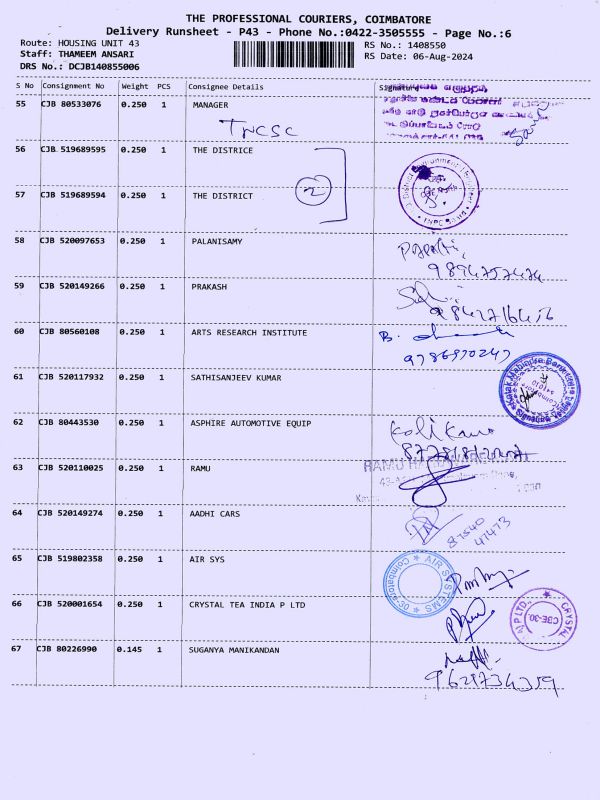 THE PROFESSIONAL COURIERS, COIMBATORE
Delivery Runsheet - P43 - Phone No.:0422-3505555 - Page No.:6
Route: HOUSING UNIT 43 RS No.: 1408550
Staff: THAMEEM ANSARI RS Date: 06-Aug-2024
DRS No.: DCJB140855006
S No Consignment No Weight PCS Consignee Details Signature
55 CJB 80533076 0.250 1 MANAGER
TNCSC
56 CJB 519689595 0.250 1 THE DISTRICE
2
57 CJB 519689594 0.250 1 THE DISTRICT
58 CJB 520097653 0.250 1 PALANISAMY
59 CJB 520149266 0.250 1 PRAKASH
60 CJB 80560108 0.250 1 ARTS RESEARCH INSTITUTE
9786970247
61 CJB 520117932 0.250 1 SATHISANJEEV KUMAR
Kotak Mahindra Bank
62 CJB 80443530 0.250 1 ASPHIRE AUTOMOTIVE EQUIP
63 CJB 520110025 0.250 1 RAMU
RAMU
64 CJB 520149274 0.250 1 AADHI CARS
87540
47473
65 CJB 519802358 0.250 1 AIR SYS
AIR SYSTEMS Coimbatore-30
66 CJB 520001654 0.250 1 CRYSTAL TEA INDIA P LTD
CRYSTAL P LTD. CBE-30.
67 CJB 80226990 0.145 1 SUGANYA MANIKANDAN